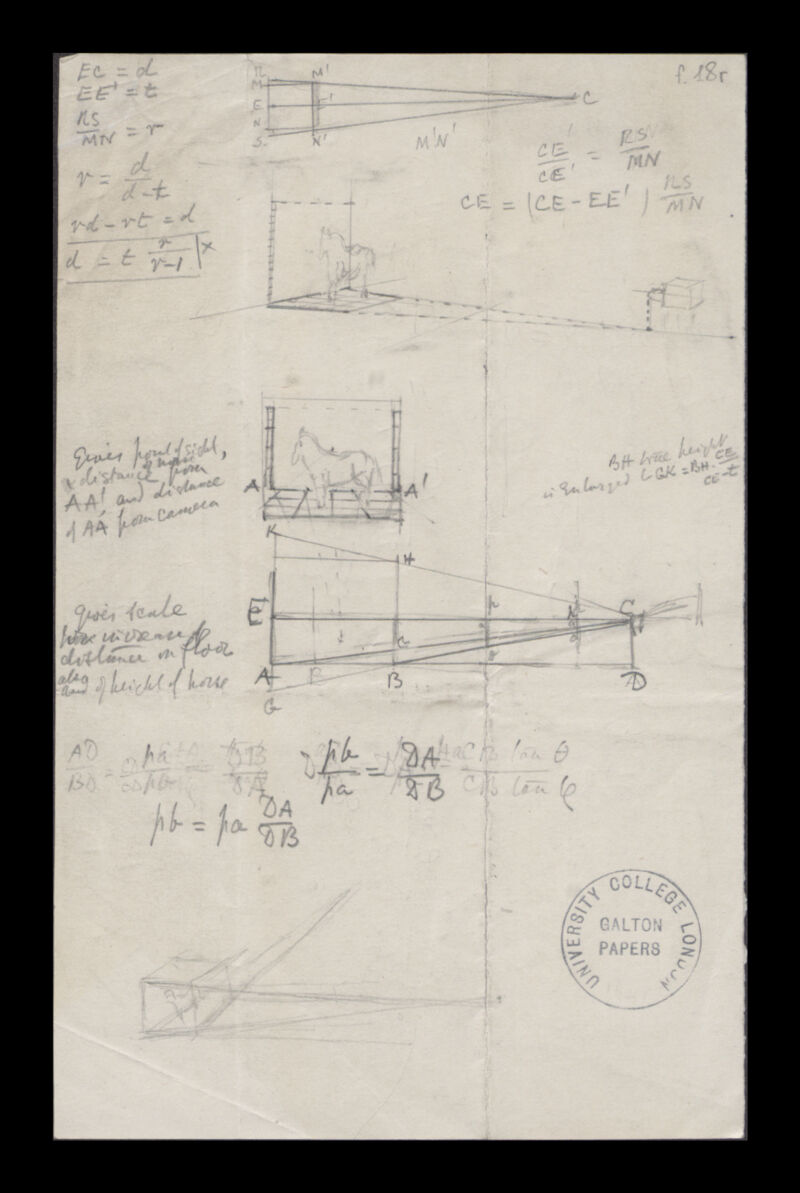 f. 18r
EC = d
EE' = t
RS/MN = r
r = d/d-t
rd - rt = d
d = t r/r-1
R
M
E
N
S
M'
E'
N'
C
M'N'
CE/CE' = RS/MN
CE = (CE - EE') RS/MN
A
A'
Gives point of sight,
& distance from
AA' and distance
of AA' from camera
BH true height
is Enlarged GK = BH. CE/CE-t
K
H
E
C
A
B
D
G
gives scale
distance on floor
also of height of horse
AD/BD
pb/pa = DA/DB
CB tan θ/CB tan φ
pb = pa DA/DB
UNIVERSITY COLLEGE LONDON
GALTON
PAPERS